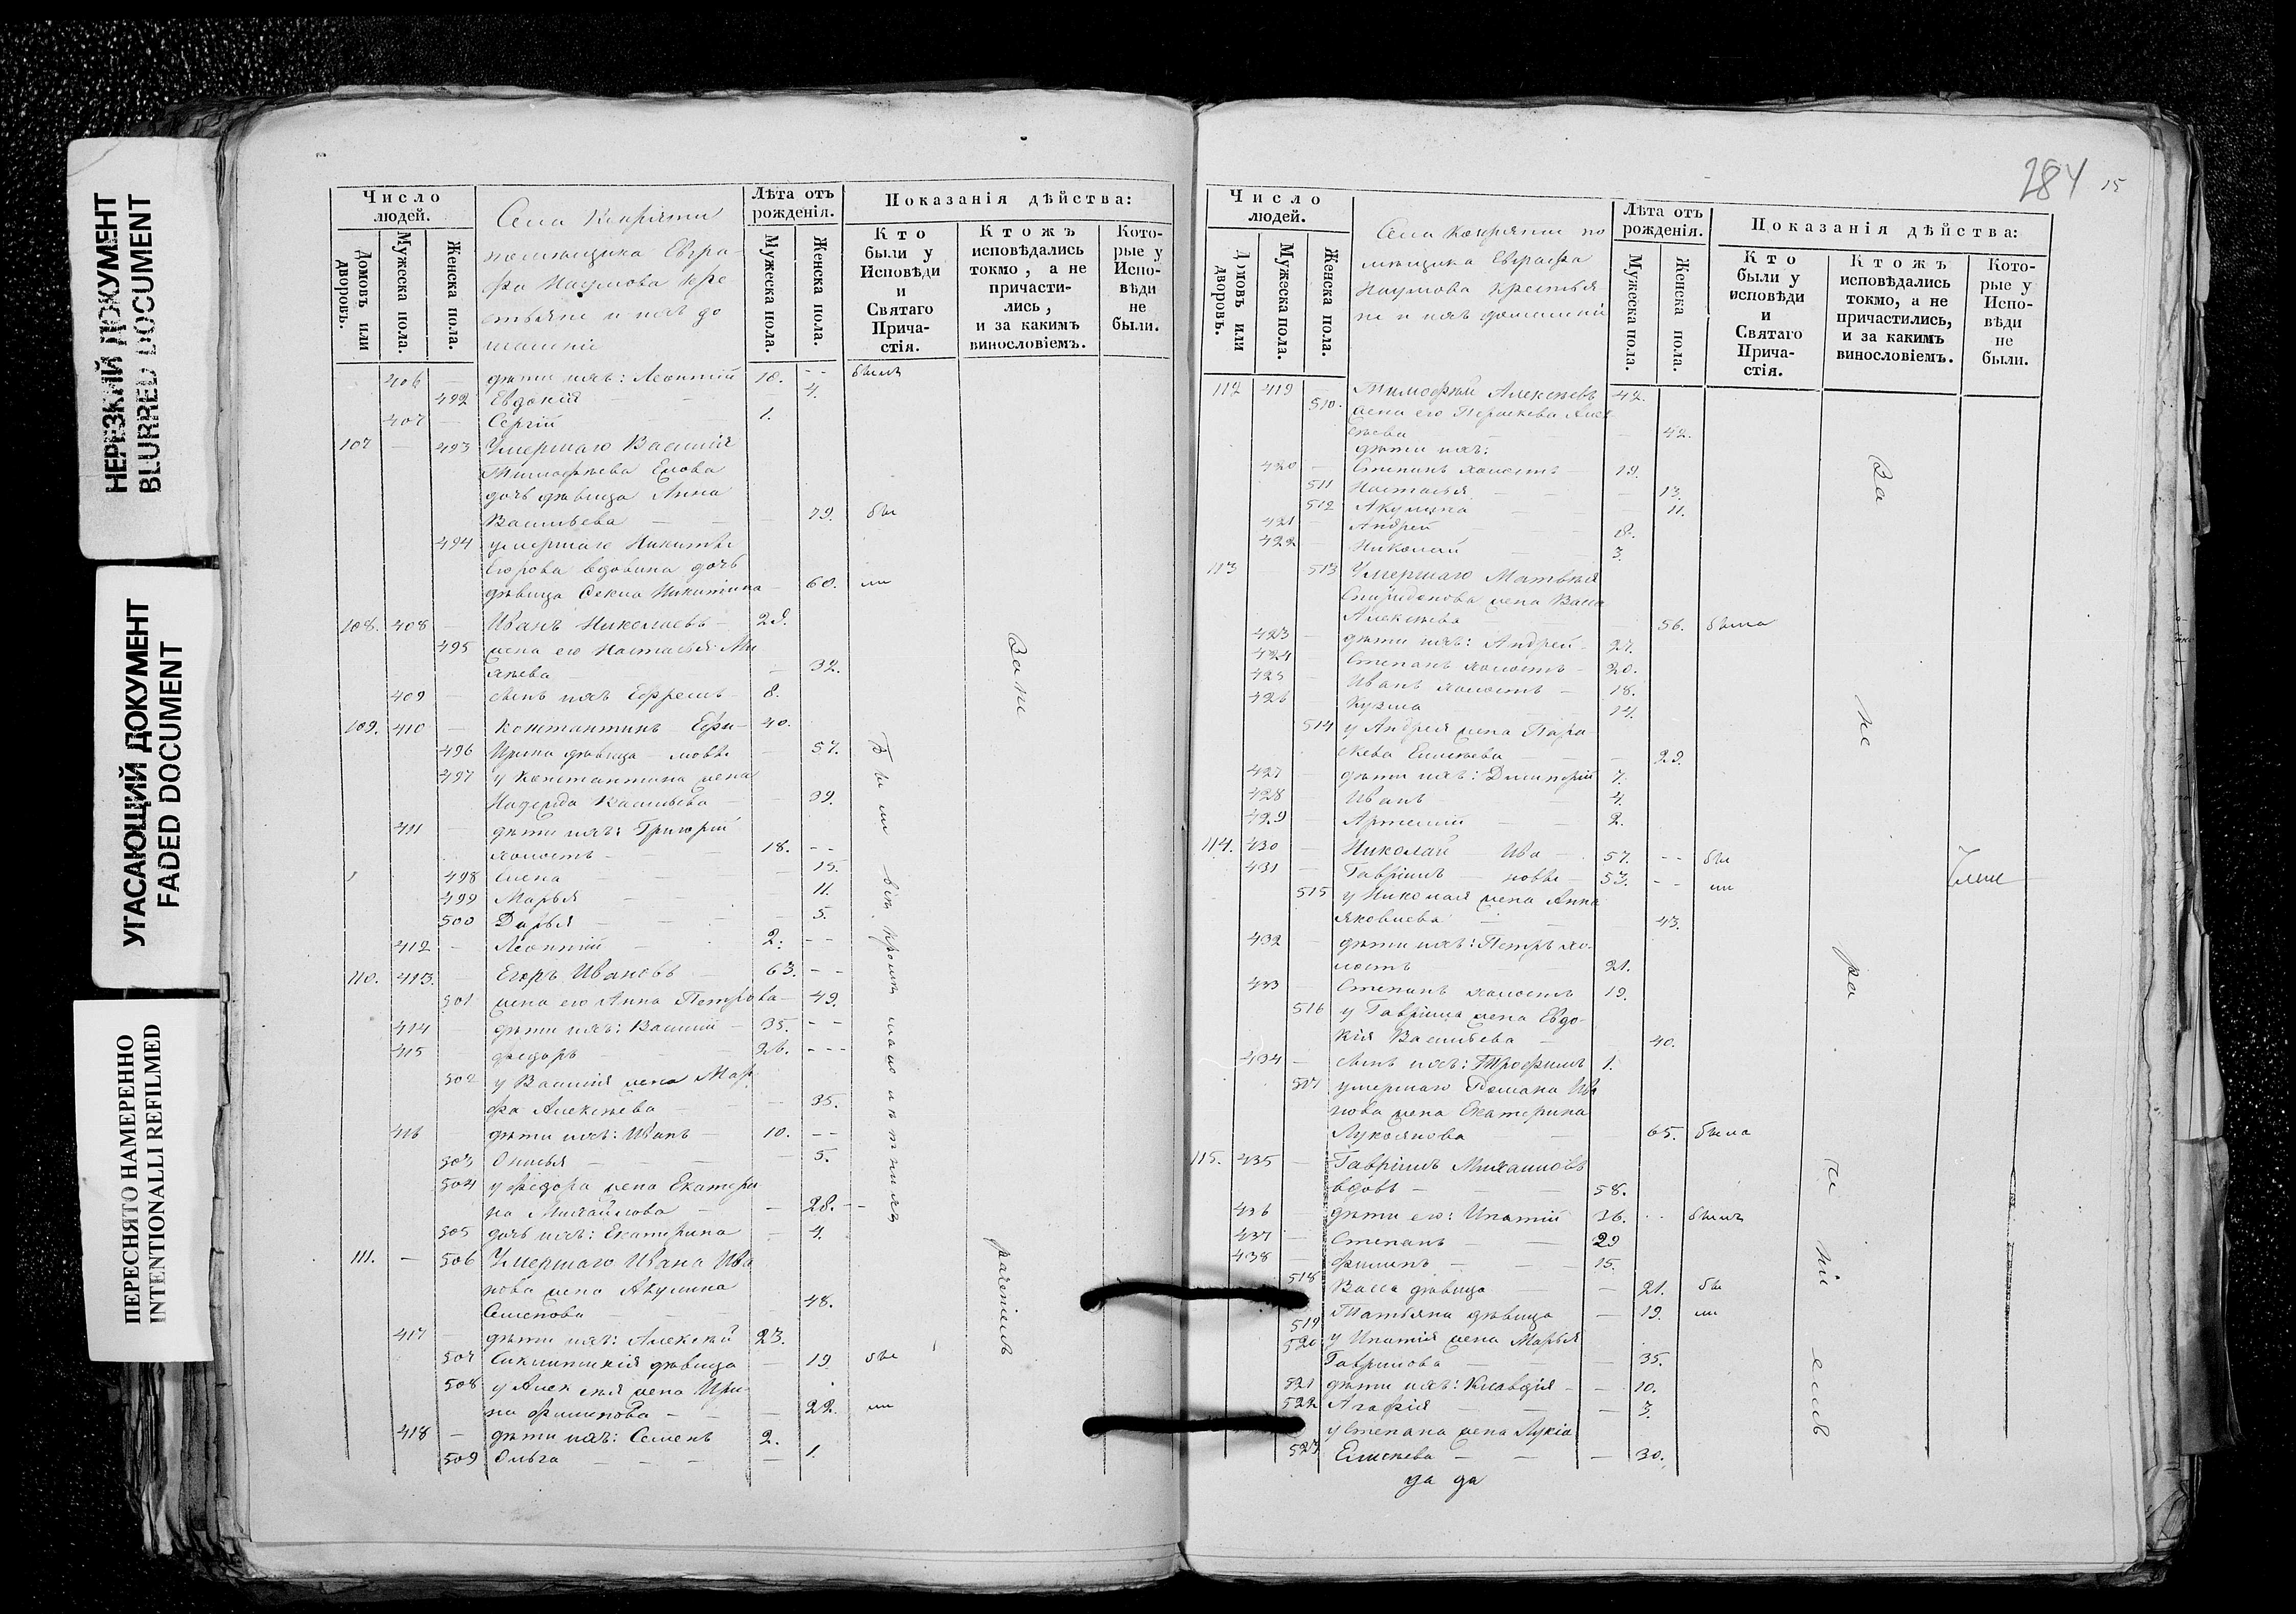 НЕРЕЗКИЙ ДОКУМЕНТ
BLURRED DOCUMENT
УГАСАЮЩИЙ ДОКУМЕНТ
FADED DOCUMENT
ПЕРЕСНЯТО НАМЕРЕННО
INTENTIONALLI REFILMED
Число людей.
Домовъ или дворовъ.
Мужеска пола.
Женска пола.
Села
помѣщика Евгра-
фа Наумова кре
стьяне и ихъ до
машніе
Лѣта отъ рожденія.
Мужеска пола.
Женска пола.
Показанія дѣйства:
Кто были у Исповѣди и Святаго Прича-стія.
Ктожъ исповѣдались токмо, а не причасти-лись, и за какимъ винословіемъ.
Кото-рые у Испо-вѣди не были.
406 — дѣти ихъ: Леонтій 10. -- былъ
492 Евдокія 4.
407 — Сергій 1.
107 — 493 Умершаго Василія
Тимофѣева
дочь дѣвица Анна
Васильева — — — 79. бы
494 умершаго Никиты
Егорова вдовина дочь
дѣвица Никитина — 60. ли
108. 408 — Иванъ Николаевъ — 29.
495 жена его Настасья Ми
хѣева — 32.
409 — сынъ ихъ Ефремъ — 8.
109. 410 — Константинъ Ефи- 40.
496 Ирина дѣвица — мовы — 57.
497 у Константина жена
Надежда Васильева — 39.
411 — дѣти ихъ: Григорій
холостъ — 18. --
498 Елена — 15.
499 Марья 11.
500 Дарья — 5.
412 — Леонтій — 2. --
110. 413. Егоръ Ивановъ — 63. --
501 жена его Анна Петрова — 49.
414 — дѣти ихъ: Василій — 35. --
415 Федоръ — 26. ---
502 у Василія жена Мар
фа Алексѣева — 35.
416 дѣти ихъ: Иванъ — 10. --
503 — — — 5.
504 у Федора жена Екатери
на Михайлова — — 28. --
505 дочь ихъ: Екатерина — 4.
111. — 506 Умершаго Ивана Ива
нова жена Акулина
Семенова — — 48.
417 — дѣти ихъ: Алексѣй 23.
507 дѣвица — 19 бы
508 у Алексѣя жена Ири-
на Филипова — — 22. ли
418 — дѣти ихъ: Семенъ 2.
509 Ольга — — — — 1.
Были всѣ, кромѣ малолѣтнихъ
За не
раченіемъ
284 15
Число людей.
Домовъ или дворовъ.
Мужеска пола.
Женска пола.
Села по
мѣщика Евграфа
Наумова крестья
не и ихъ домашніе
Лѣта отъ рожденія.
Мужеска пола.
Женска пола.
Показанія дѣйства:
Кто были у исповѣди и Святаго Прича-стія.
Ктожъ исповѣдались токмо, а не причастились, и за какимъ винословіемъ.
Кото-рые у Испо-вѣди не были.
112 419 — Тимофѣй Алексѣевъ 42.
510. жена его Параскева Алек
сѣева — 42.
дѣти ихъ:
420 — Степанъ холостъ — 19.
511 Настасья — — — 13.
512 Акулина — — 11.
421 — Андрей — 8.
422 — Николай — 3.
113 513 Умершаго Матвѣя
Спиридонова жена Васса
Алексѣева — 56. была
423 — дѣти ихъ: Андрей — 27.
424 — Степанъ холостъ — 20.
425 — Иванъ холостъ — 18.
426 — Кузма 14.
514 у Андрея жена Пара
скева Елисѣева — — 29.
427 — дѣти ихъ: Димитрій 7.
428 Иванъ — 4.
429 — Артемій — — 2.
114. 430 — Николай — Ива — 57. -- бы
431 — Гавріилъ — новы — 53. -- ли
515 у Николая жена Анна
Яковлева — 43.
432 — дѣти ихъ: Петръ хо-
лостъ — 21.
433 — Степанъ холостъ 19.
516 у Гавріила жена Евдо-
кія Васильева — 40.
434 — сынъ ихъ: Трофимъ 1.
517 умершаго Романа Ива
нова жена Екатерина
Лукоянова — — — 65. была
115. 435 — Гавріилъ Михайловъ
вдовъ — — 58.
436 — дѣти его: Ипатій 36. -- былъ
437 — Степанъ — — 29
438 — Филипъ — — 15.
518 Васса дѣвица — — 21. бы
519 Татьяна дѣвица — 19. ли
520 у Ипатія жена Марья
Гаврилова — — — 35.
521 дѣти ихъ: Клавдія — — 10.
522 Агафія — — — 3.
у Степана жена Лукія
523 Елисѣева — — — 30.
За не ра че ні емъ